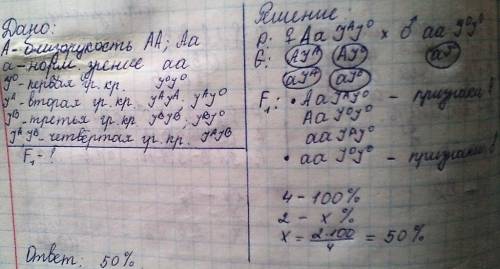 Дано:
А - близорукость АА; Аа
а - норм. зрение аа
J⁰ - первая гр. кр. J⁰J⁰
Jᴬ - вторая гр. кр. JᴬJᴬ; JᴬJ⁰
Jᴮ - третья гр. кр. JᴮJᴮ; JᴮJ⁰
JᴬJᴮ - четвёртая гр. кр. JᴬJᴮ
F₁ - ?
Ответ: 50%
Решение:
P: ♀ Аа JᴬJ⁰ × ♂ аа J⁰J⁰
G: АJᴬ АJ⁰ аJ⁰
аJᴬ аJ⁰
F₁: • Аа JᴬJ⁰ - признаки!
Аа J⁰J⁰
аа JᴬJ⁰
• аа J⁰J⁰ - признаки!
4 - 100%
2 - x %
x = 2·100/4 = 50%